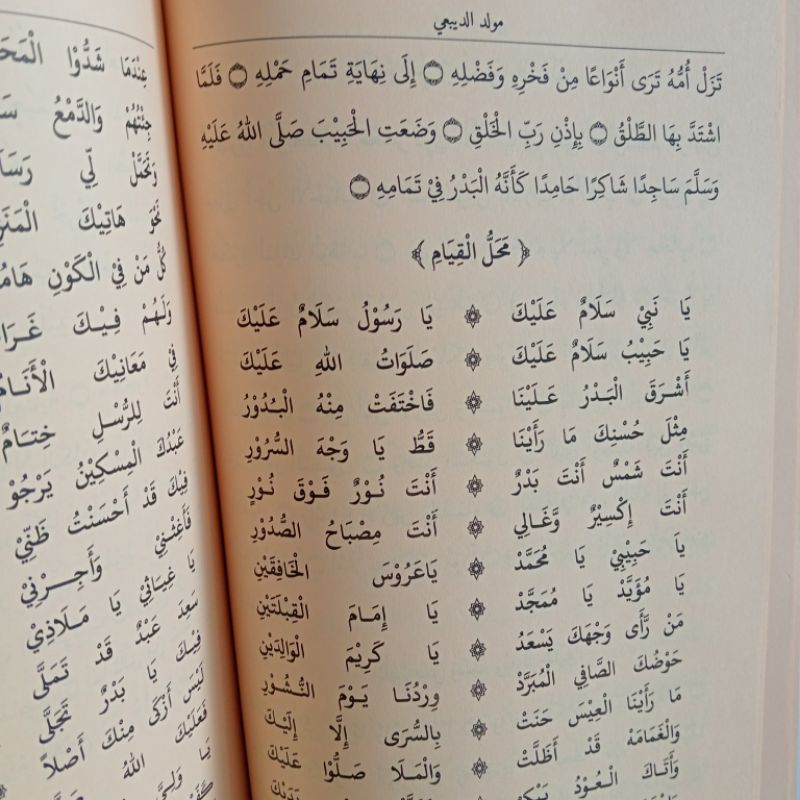 مولد الديبعي
تَزَلْ أُمُّهُ تَرَى أَنْوَاعًا مِنْ فَخْرِهِ وَفَضْلِهِ ۝ إِلَى نِهَايَةِ تَمَامِ حَمْلِهِ ۝ فَلَمَّا
اشْتَدَّ بِهَا الطَّلْقُ ۝ بِإِذْنِ رَبِّ الْخَلْقِ ۝ وَضَعَتِ الْحَبِيْبَ صَلَّى اللهُ عَلَيْهِ
وَسَلَّمَ سَاجِدًا شَاكِرًا حَامِدًا كَأَنَّهُ الْبَدْرُ فِيْ تَمَامِهِ ۝
﴿ مَحَلُّ الْقِيَامِ ﴾
يَا نَبِيْ سَلَامٌ عَلَيْكَ ۞ يَا رَسُوْلُ سَلَامٌ عَلَيْكَ
يَا حَبِيْبُ سَلَامٌ عَلَيْكَ ۞ صَلَوَاتُ اللهِ عَلَيْكَ
أَشْرَقَ الْبَدْرُ عَلَيْنَا ۞ فَاخْتَفَتْ مِنْهُ الْبُدُوْرُ
مِثْلَ حُسْنِكَ مَا رَأَيْنَا ۞ قَطُّ يَا وَجْهَ السُّرُوْرِ
أَنْتَ شَمْسٌ أَنْتَ بَدْرٌ ۞ أَنْتَ نُوْرٌ فَوْقَ نُوْرٍ
أَنْتَ إِكْسِيْرٌ وَّغَالِي ۞ أَنْتَ مِصْبَاحُ الصُّدُوْرِ
يَا حَبِيْبِيْ يَا مُحَمَّدْ ۞ يَاعَرُوْسَ الْخَافِقَيْنِ
يَا مُؤَيَّدْ يَا مُمَجَّدْ ۞ يَا إِمَامَ الْقِبْلَتَيْنِ
مَنْ رَّأَى وَجْهَكَ يَسْعَدُ ۞ يَا كَرِيْمَ الْوَالِدَيْنِ
حَوْضُكَ الصَّافِي الْمُبَرَّدْ ۞ وِرْدُنَا يَوْمَ النُّشُوْرِ
مَا رَأَيْنَا الْعِيْسَ حَنَتْ ۞ بِالسُّرَى إِلَّا إِلَيْكَ
وَالْغَمَامَهْ قَدْ أَظَلَّتْ ۞ وَالْمَلَا صَلُّوْا عَلَيْكَ
وَأَتَاكَ الْعُوْدُ يَبْكِيْ
عِنْدَمَا شَدُّوْا
جِئْتُهُمْ وَالدَّمْعُ
وَتَحَمَّلْ لِي
نَحْوَ هَاتِيْكَ
كُلُّ مَنْ فِي الْكَوْنِ
وَلَهُمْ فِيْكَ
فِيْ مَعَانِيْكَ الْأَنَامُ
أَنْتَ لِلرُّسْلِ خِتَامٌ
عَبْدُكَ الْمِسْكِيْنُ يَرْجُوْ
فِيْكَ قَدْ أَحْسَنْتُ ظَنِّيْ
فَأَغِثْنِيْ وَأَجِرْنِيْ
يَا غِيَاثِيْ يَا مَلَاذِيْ
سَعِدَ عَبْدٌ قَدْ تَمَلَّى
فِيْكَ يَا بَدْرٌ تَجَلَّى
لَيْسَ أَزْكَى مِنْكَ أَصْلًا
فَعَلَيْكَ اللهُ